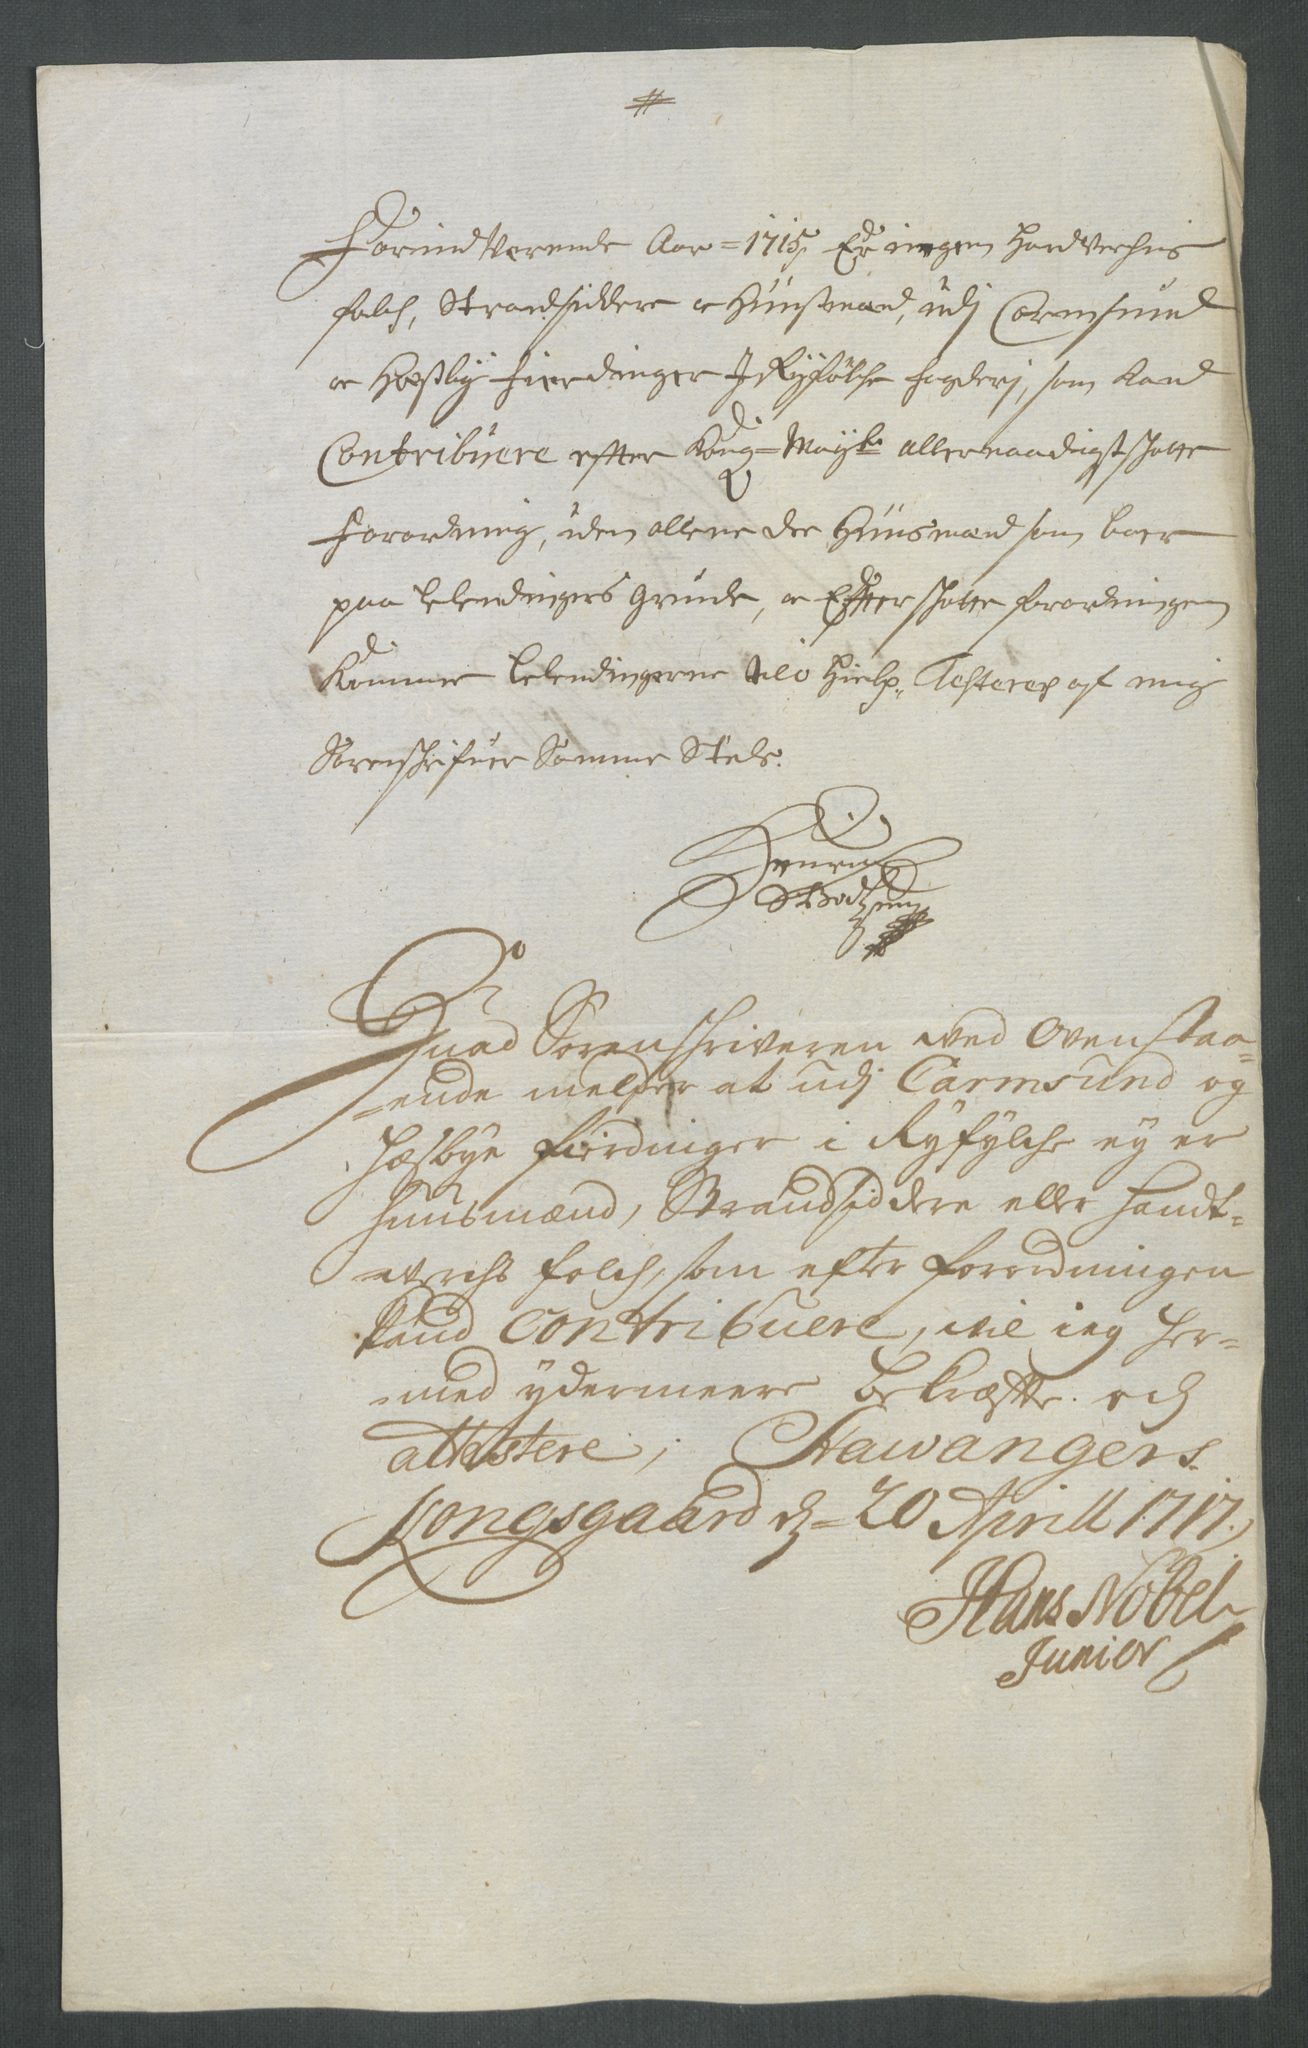 #
Forindværende Aar = 1715. Er ingen Handverchs
folch, Strandsiddere oc Huusmænd, udj Carmsund
oc Hæsbÿ fierdinger J Rÿfölche fogderj, som Kand
Contribuere efter Kong= Maÿts. allernaadigst skatte
forordning, uden allene dee Huusmænd som boer
paa Leilendingers Grunde, oc Efter skatte forordningen
Kommer Leilendingerne til Hielp, Testeres af mig
Sorenskrifver Samme Steds.
Henrich
Huad Sorenschriveren ved Ovenstaa=
=ende melder at udj Carmsund og
Hæsbÿe fierdinger i Rÿfÿlche eÿ er
huusmænd, Strandsiddere eller handt=
werchs folch, som efter forordningen
kand Contribuere, vil ieg her=
=med ÿdermeere bekræfte og
attestere, Stawangers
Kongsgaard d= 20 Aprill 1717.
Hans Nobel
Junior